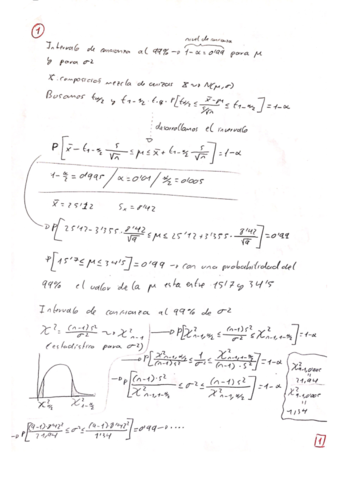 1
nivel de confianza
Intervalo de confianza al 99% → 1-α = 0'99 para μ
y para σ2
X composición mezcla de X ~ N(μ,σ)
Buscamos tα/2 y t1-α/2 t.q. P[tα/2 ≤ x̄-μ / s/√n ≤ t1-α/2] = 1-α
desarrollamos el intervalo
P[x̄ - t1-α/2 s/√n ≤ μ ≤ x̄ + t1-α/2 s/√n] = 1-α
1-α/2 = 0'995 / α = 0'01 / α/2 = 0'005
x̄ = 25'12 = 8'42
→ P[25'12 - 3'355 · 8'42/√9 ≤ μ ≤ 25'12 + 3'355 · 8'42/√9] = 0'99
P[15'7 ≤ μ ≤ 34'5] = 0'99 → con una probabilidad del
99% el valor de la μ está entre 15'7 y 34'5
Intervalo de confianza al 99% de σ2
χ2 = (n-1)s2/σ2 ~> χ2 n-1 → P[χ2 n-1,α/2 ≤ (n-1)s2/σ2 ≤ χ2 n-1,1-α/2] = 1-α
(estadístico para σ2)
→ P[χ2 n-1,α/2 / (n-1)s2 ≤ 1/σ2 ≤ χ2 n-1,1-α/2 / (n-1)·s2] = 1-α
→ P[(n-1)·s2 / χ2 n-1,1-α/2 ≤ σ2 ≤ (n-1)s2 / χ2 n-1,α/2] = 1-α
21,94
1,34
χ2 α/2 χ2 1-α/2
→ P[(9-1)8'42² / 21,94 ≤ σ2 ≤ (9-1)8'42² / 1'34] = 0'99 → ....
1